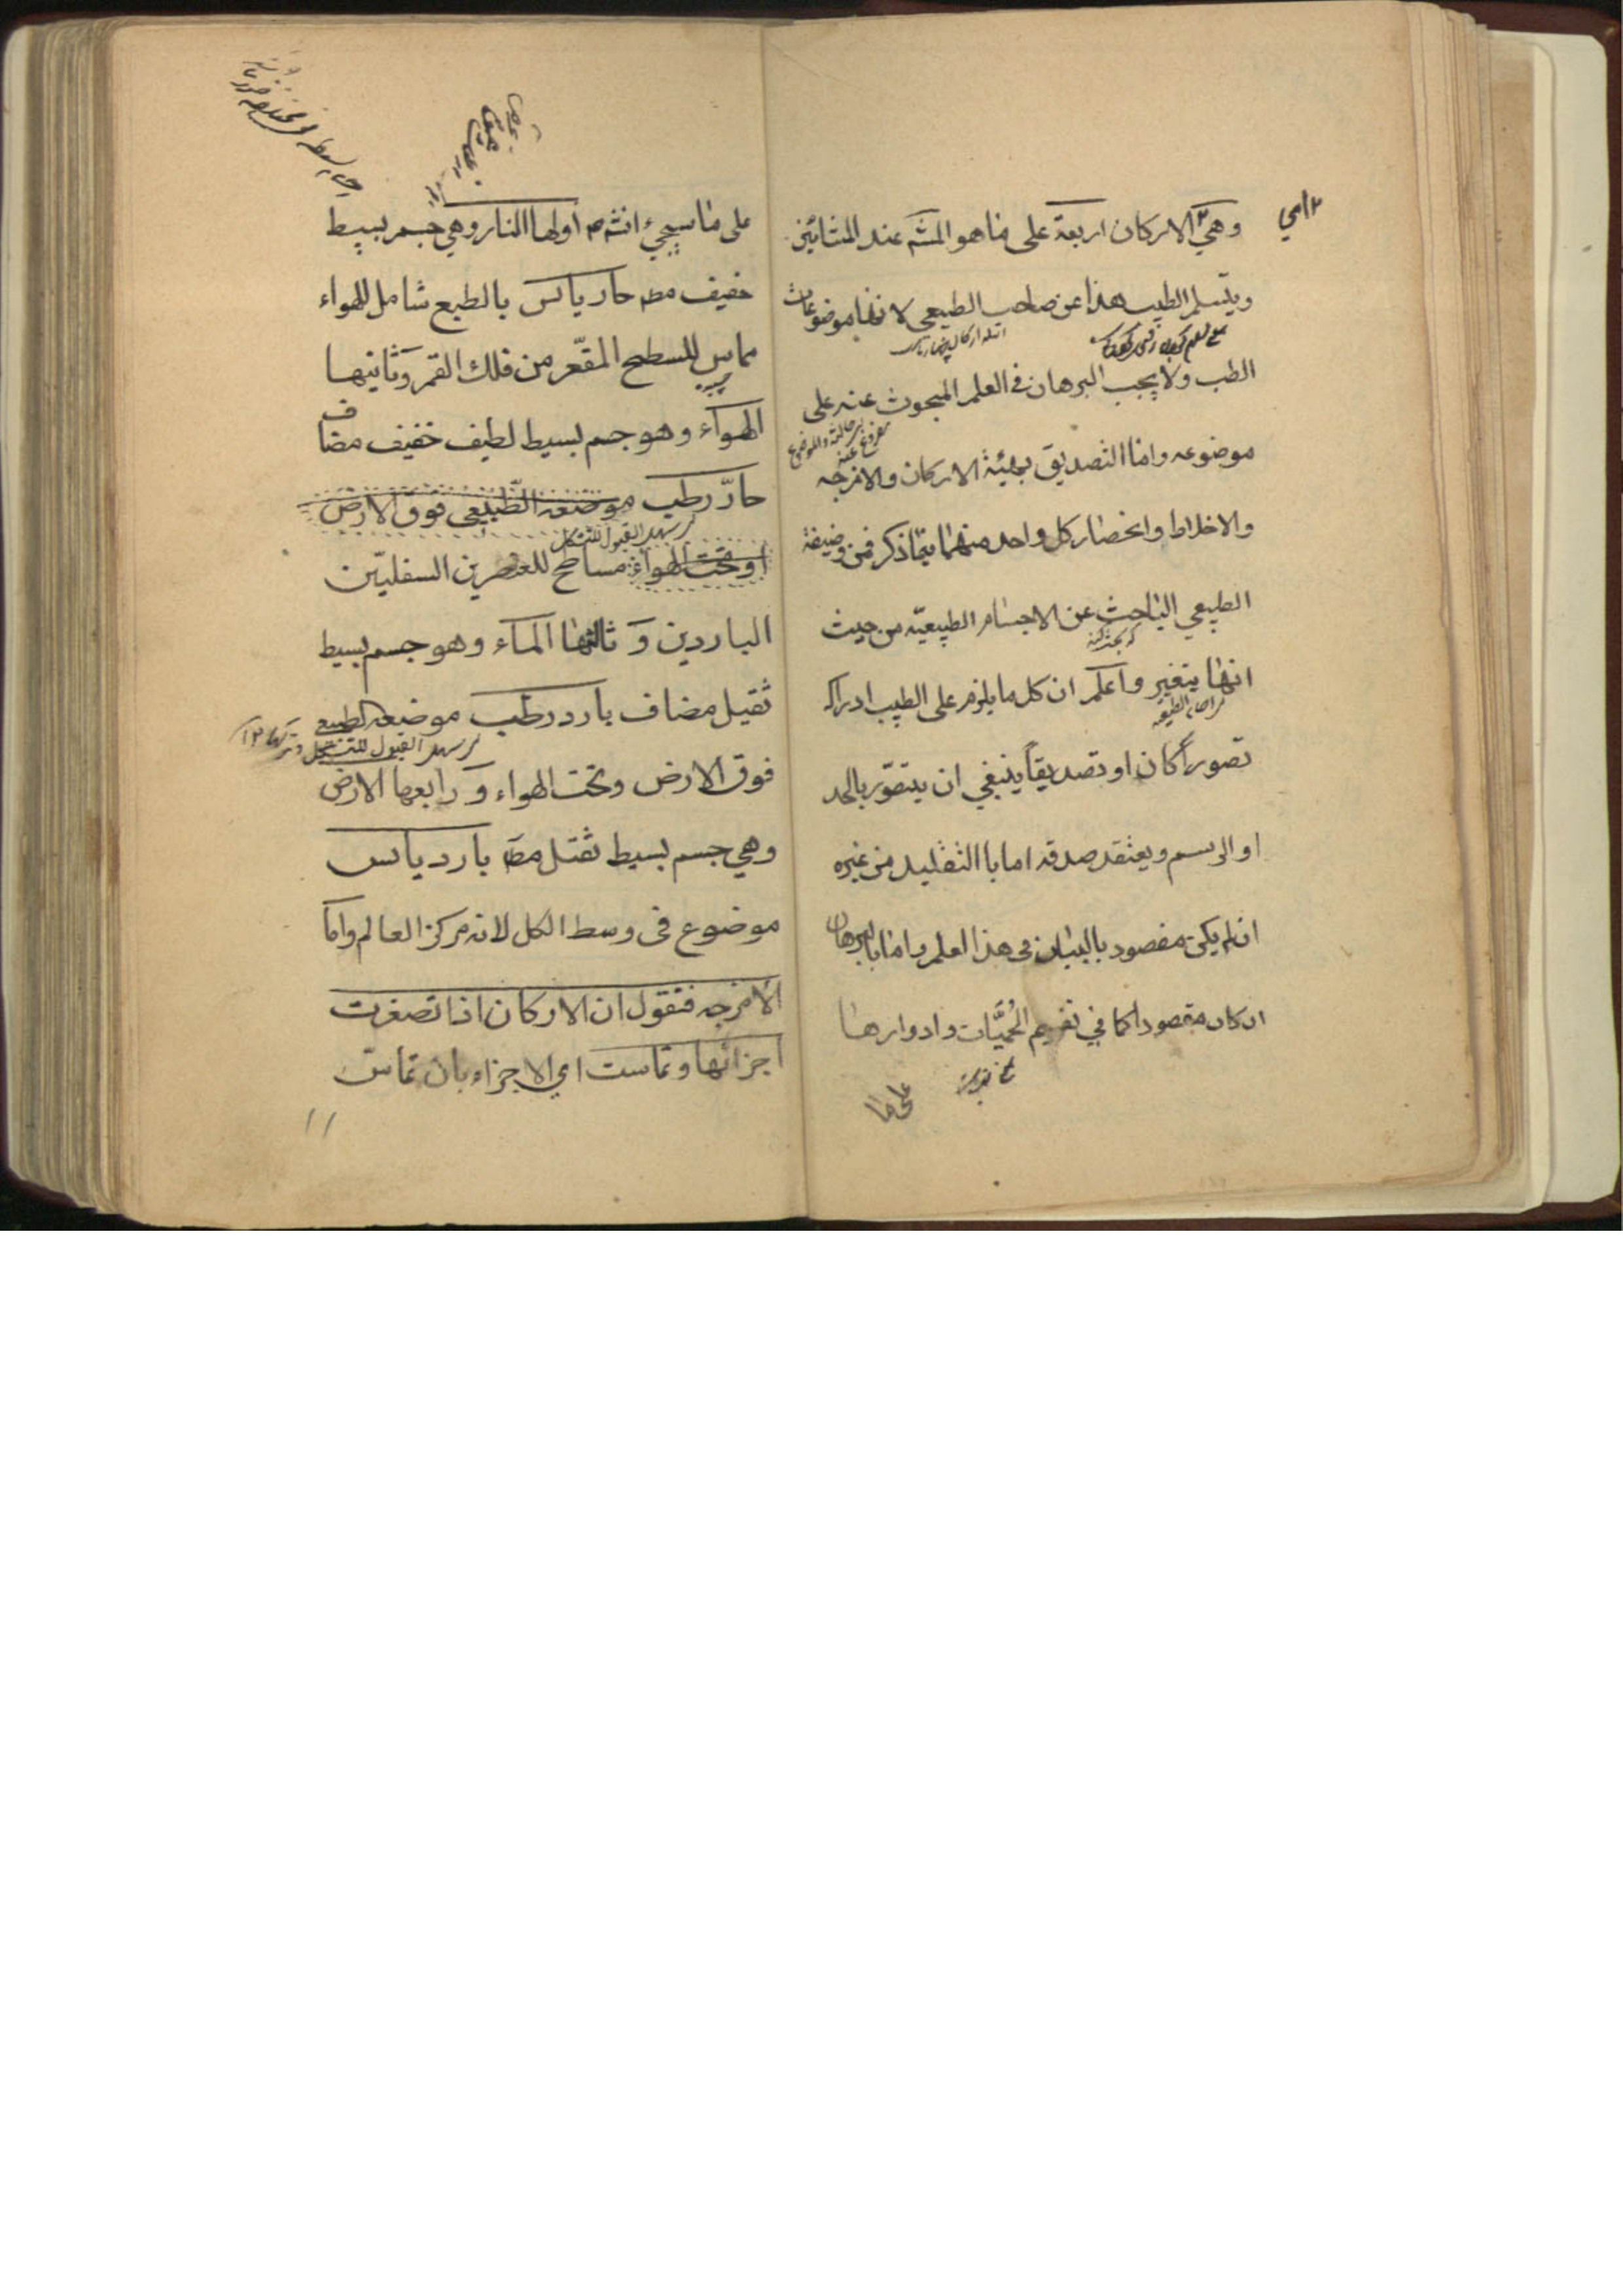 وهي الاركان اربعة على ما هو المشه عند المشائين
ويتسلم الطبيب هذا عن صاحب الطبيعي لانها موضوعات
الطب ولا يجب البرهان في العلم المبحوث عنه على
موضوعه واما التصديق بهلية الاركان والامزجه
والاخلاط وانحصار كل واحد منهما فيما ذكر فمن وضيفة
الطبيعي الباحث عن الاجسام الطبيعيّه من حيث
انها يتغير واعلم ان كل ما يلزم على الطبيب ادراكه
تصوراً كان او تصديقاً ينبغي ان يتصوّر بالحد
او الرسم ويعتقد صدقه اما باالتقليد من غيره
ان لم يكن مقصود بالبيان في هذا العلم واما بالبرهان
ان كان مقصودا كما في تقويم الحُميَّات وادوارها
على ما
على ما سيجيء انشه اولها النار وهي جسم بسيط
خفيف مط حار يابس بالطبع شامل للهواء
مماس للسطح المقعّر من فلك القمر وثانيها
الهواء وهو جسم بسيط لطيف خفيف مضاف
حارّ رطب موضعه الطّبيعي فوق الارض
سهل القبول للتشكل
او تحت الهواء مساطح للعنصرين السفليّين
الباردين وثالثها الماء وهو جسم بسيط
ثقيل مضاف بارد رطب موضعه الطبيعي
سهل القبول للتشكل
فوق الارض وتحت الهواء ورابعها الارض
وهي جسم بسيط ثقيل مط بارد يابس
موضوع فى وسط الكل لانه مركز العالم واما
الامزجه فنقول ان الاركان اذا تصغرت
اجزائها وتماست اي الاجزاء بان تماس
١١